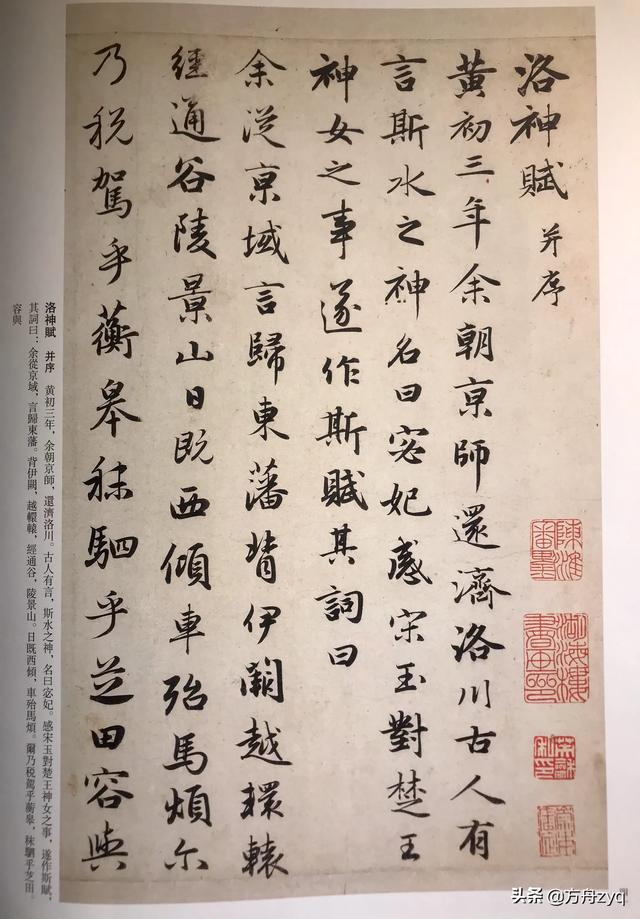 洛神賦 并序
黄初三年余朝京師還濟洛川古人有
言斯水之神名曰宓妃感宋玉對楚王
神女之事遂作斯賦其詞曰
余從京域言歸東藩背伊闕越轘轅
經通谷陵景山日既西傾車殆馬煩尔
乃税駕乎蘅皋秣駟乎芝田容與
洛神賦 并序 黄初三年，余朝京師，還濟洛川。古人有言，斯水之神，名曰宓妃。感宋玉對楚王神女之事，遂作斯賦，
其詞曰：余從京域，言歸東藩。背伊闕，越轘轅，經通谷，陵景山。日既西傾，車殆馬煩。爾乃税駕乎蘅皋，秣駟乎芝田。
容與
头条 @方舟zyq